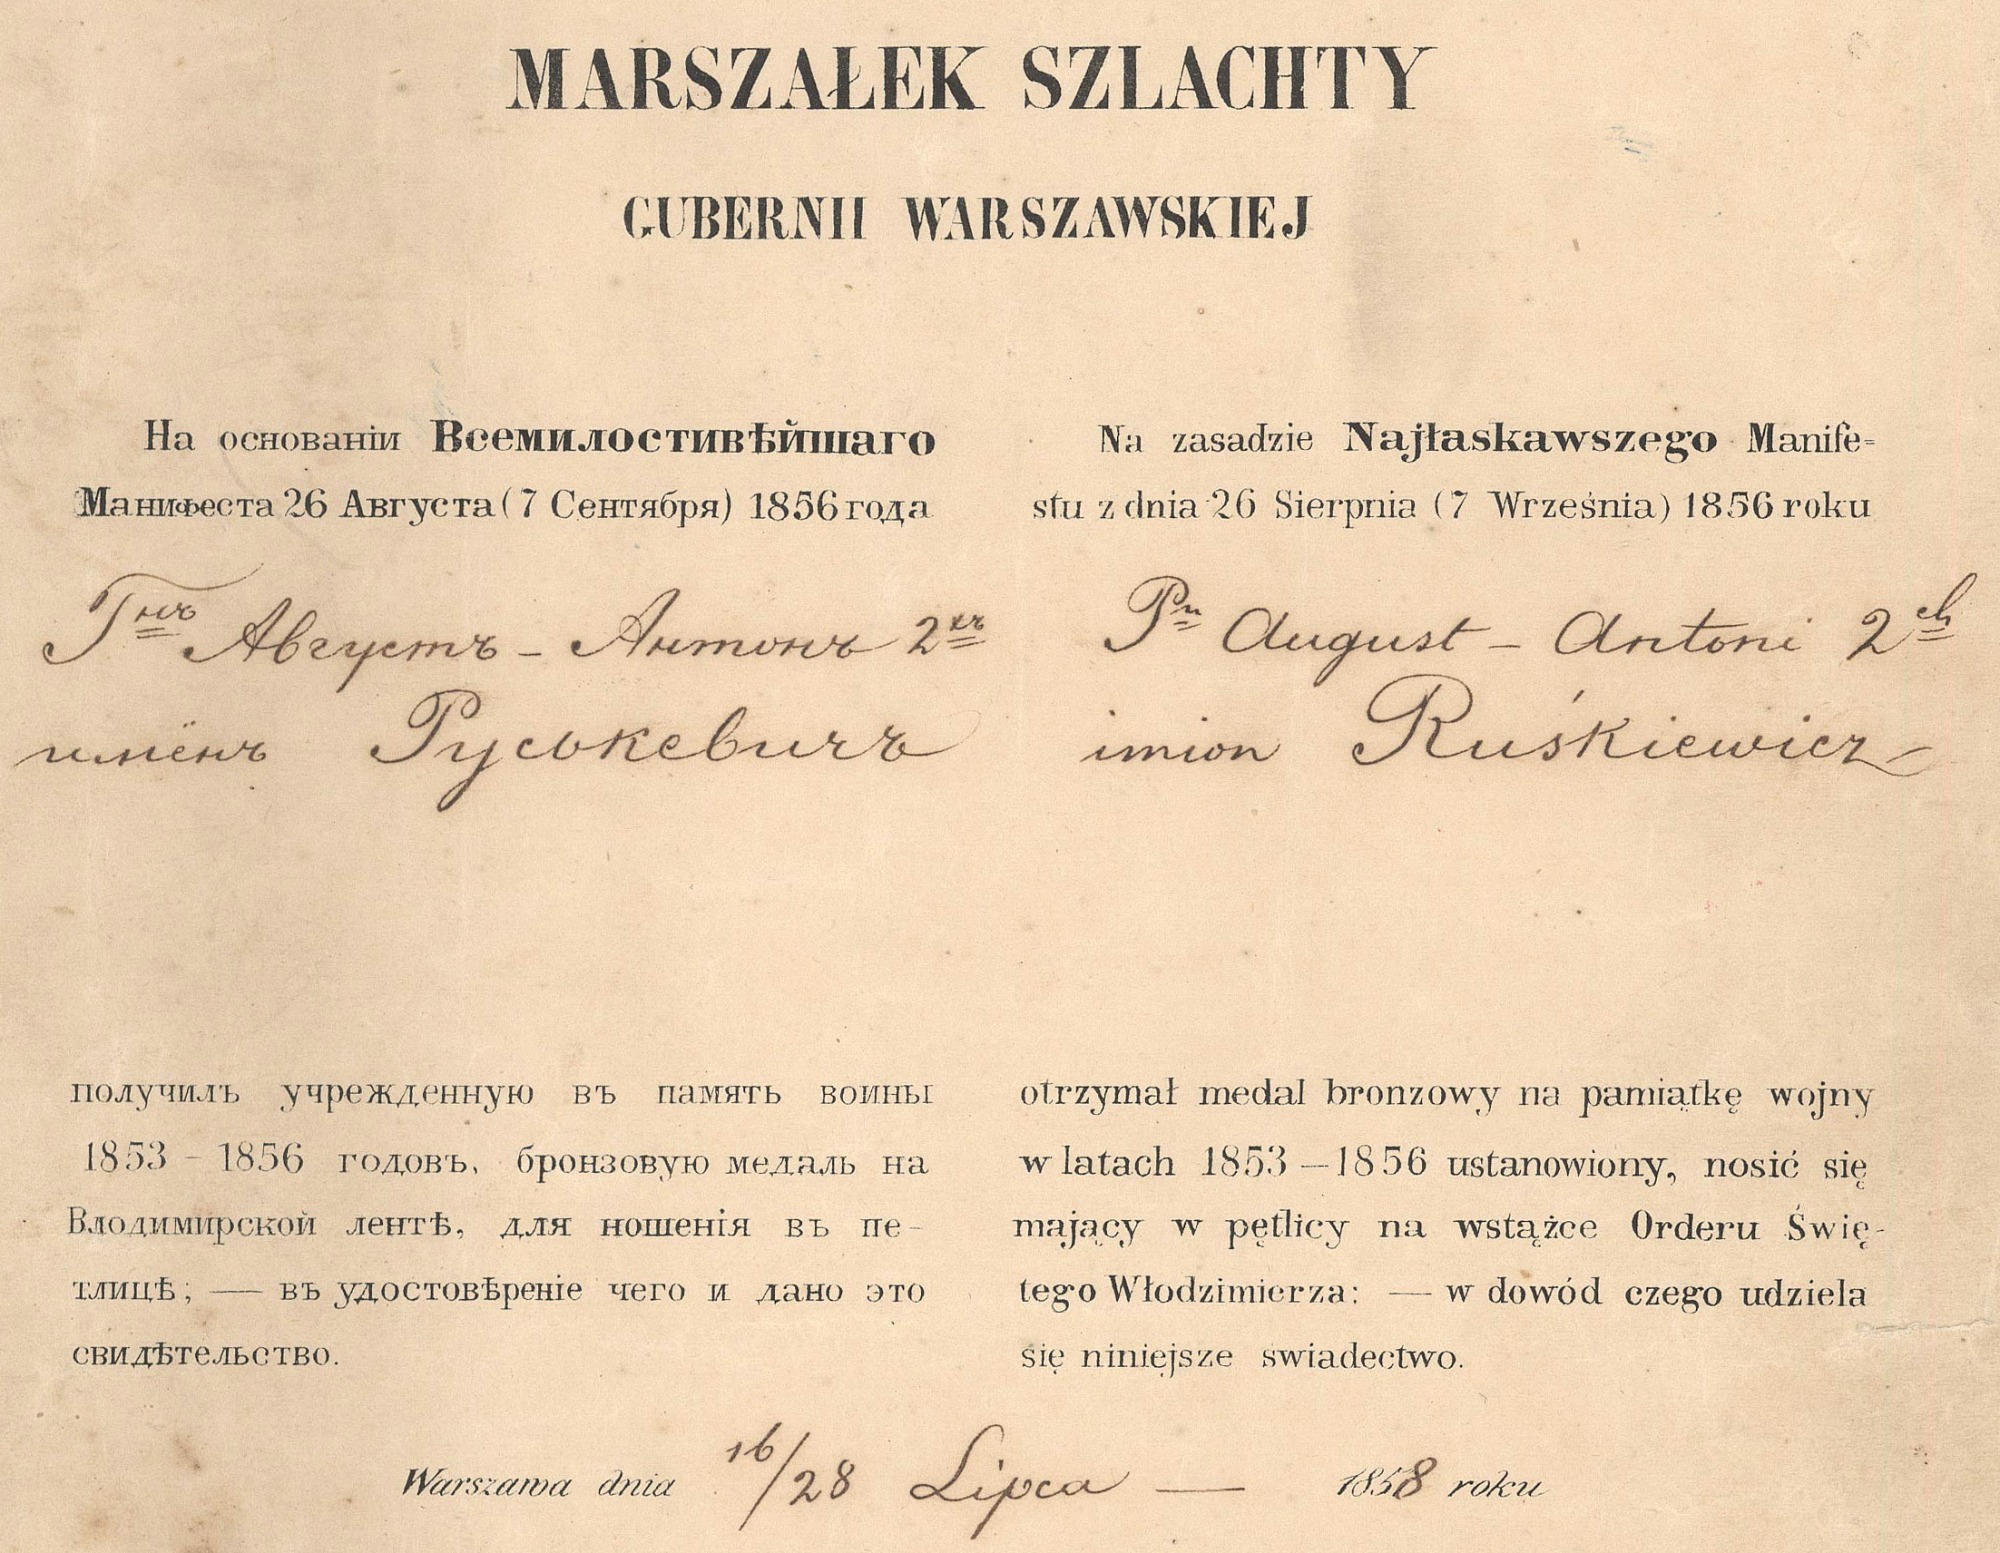 MARSZAŁEK SZLACHTY
GUBERNII WARSZAWSKIEJ
На основаніи Всемилостивѣйшаго
Манифеста 26 Августа (7 Сентября) 1856 года
Гнъ Августъ - Антонъ 2хъ
имёнъ Руськевичъ
получилъ учрежденную въ память войны
1853 - 1856 годовъ, бронзовую медаль на
Владимирской лентѣ, для ношенія въ пе-
тлицѣ; — въ удостовѣреніе чего и дано это
свидѣтельство.
Na zasadzie Najłaskawszego Manife=
stu z dnia 26 Sierpnia (7 Września) 1856 roku
Pn August - Antoni 2ch
imion Ruśkiewicz
otrzymał medal bronzowy na pamiątkę wojny
w latach 1853 - 1856 ustanowiony, nosić się
mający w pętlicy na wstążce Orderu Świę-
tego Włodzimierza: — w dowód czego udziela
się niniejsze swiadectwo.
Warszawa dnia 16/28 Lipca — 1858 roku